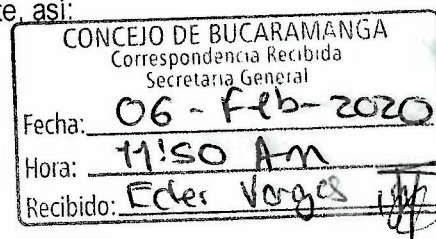 te, así:
CONCEJO DE BUCARAMANGA
Correspondencia Recibida
Secretaria General
Fecha: 06 - Feb - 2020
Hora: 11:50 Am
Recibido: Eder Vargas